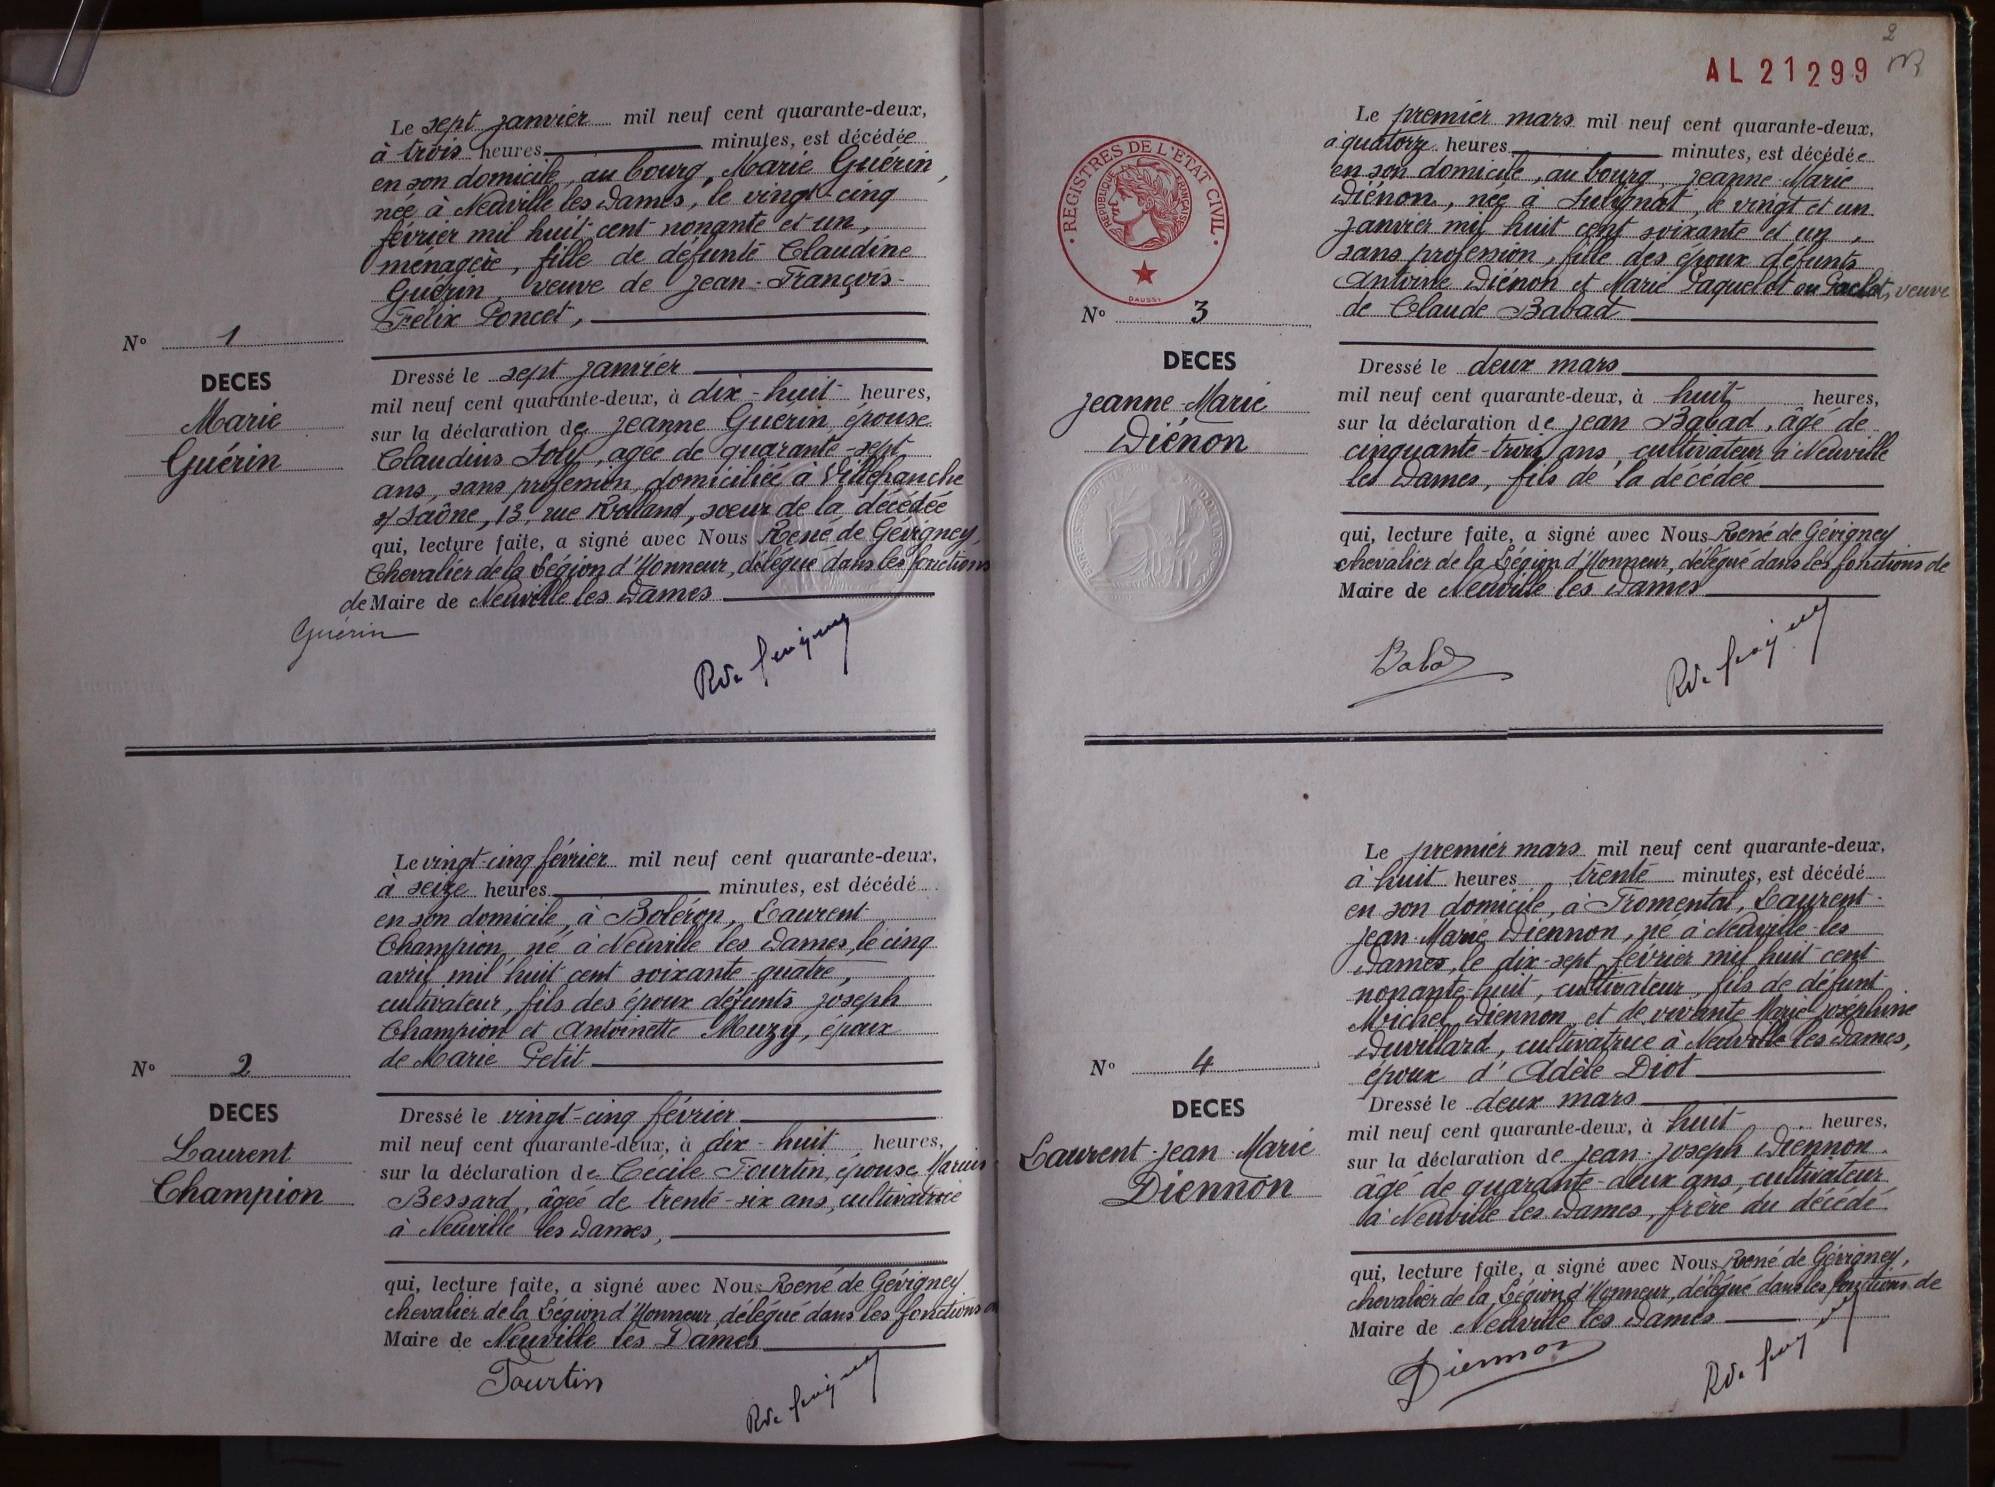 Le sept janvier mil neuf cent quarante-deux,
à trois heures minutes, est décédée
en son domicile, au bourg, Marie Guérin,
née à Neuville les Dames, le vingt-cinq
février mil huit-cent nonante et un,
ménagère, fille de défunte Claudine
Guérin, veuve de Jean-François-
Félix Poncet,
N° 1
DECES
Marie
Guérin
Dressé le sept janvier
mil neuf cent quarante-deux, à dix-huit heures,
sur la déclaration de Jeanne Guérin, épouse
Claudius Joly, agée de quarante-sept
ans, sans profession, domiciliée à Villefranche
s/ Saône, 13, rue Rolland, soeur de la décédée
qui, lecture faite, a signé avec Nous René de Gévigney,
Chevalier de la Légion d'Honneur, délégué dans les fonctions
de Maire de Neuville les Dames
Guérin
Le vingt-cinq février mil neuf cent quarante-deux,
à seize heures minutes, est décédé
en son domicile, à Boléron, Laurent
Champion, né à Neuville les Dames, le cinq
avril mil huit cent soixante-quatre,
cultivateur, fils des époux défunts Joseph
Champion et Antoinette Muzy, époux
de Marie Petit
N° 2
DECES
Laurent
Champion
Dressé le vingt-cinq février
mil neuf cent quarante-deux, à dix-huit heures,
sur la déclaration de Cécile Tourtin, épouse Marius
Bessard, âgée de trente-six ans, cultivatrice
à Neuville les Dames,
qui, lecture faite, a signé avec Nous René de Gévigney
chevalier de la Légion d'Honneur, délégué dans les fonctions
Maire de Neuville les Dames
Tourtin
2
AL 21299
REGISTRES DE L'ETAT CIVIL
REPUBLIQUE FRANÇAISE
DAUSSY
Le premier mars mil neuf cent quarante-deux,
à quatorze heures minutes, est décédée
en son domicile, au bourg, Jeanne-Marie
Diénon, née à Sulignat, le vingt et un
janvier mil huit cent soixante et un,
sans profession, fille des époux défunts
Antoine Diénon et Marie Paquelet ou Paclet, veuve
de Claude Babad
N° 3
DECES
Jeanne-Marie
Diénon
Dressé le deux mars
mil neuf cent quarante-deux, à huit heures,
sur la déclaration de Jean Babad, âgé de
cinquante-trois ans, cultivateur à Neuville
les Dames, fils de la décédée
qui, lecture faite, a signé avec Nous René de Gévigney
chevalier de la Légion d'Honneur, délégué dans les fonctions de
Maire de Neuville les Dames
Babad
Le premier mars mil neuf cent quarante-deux,
à huit heures trente minutes, est décédé
en son domicile, à Fromental, Laurent-
Jean-Marie Diennon, né à Neuville-les
Dames, le dix-sept février mil huit cent
nonante-huit, cultivateur, fils de défunt
Michel Diennon et de vivante Marie-Joséphine
Duvillard, cultivatrice à Neuville les Dames,
époux d'Adèle Diot
N° 4
DECES
Laurent-Jean-Marie
Diennon
Dressé le deux mars
mil neuf cent quarante-deux, à huit heures,
sur la déclaration de Jean-Joseph Diennon
âgé de quarante-deux ans, cultivateur
à Neuville les Dames, frère du décédé
qui, lecture faite, a signé avec Nous René de Gévigney,
chevalier de la Légion d'Honneur, délégué dans les fonctions de
Maire de Neuville les Dames
Diennon